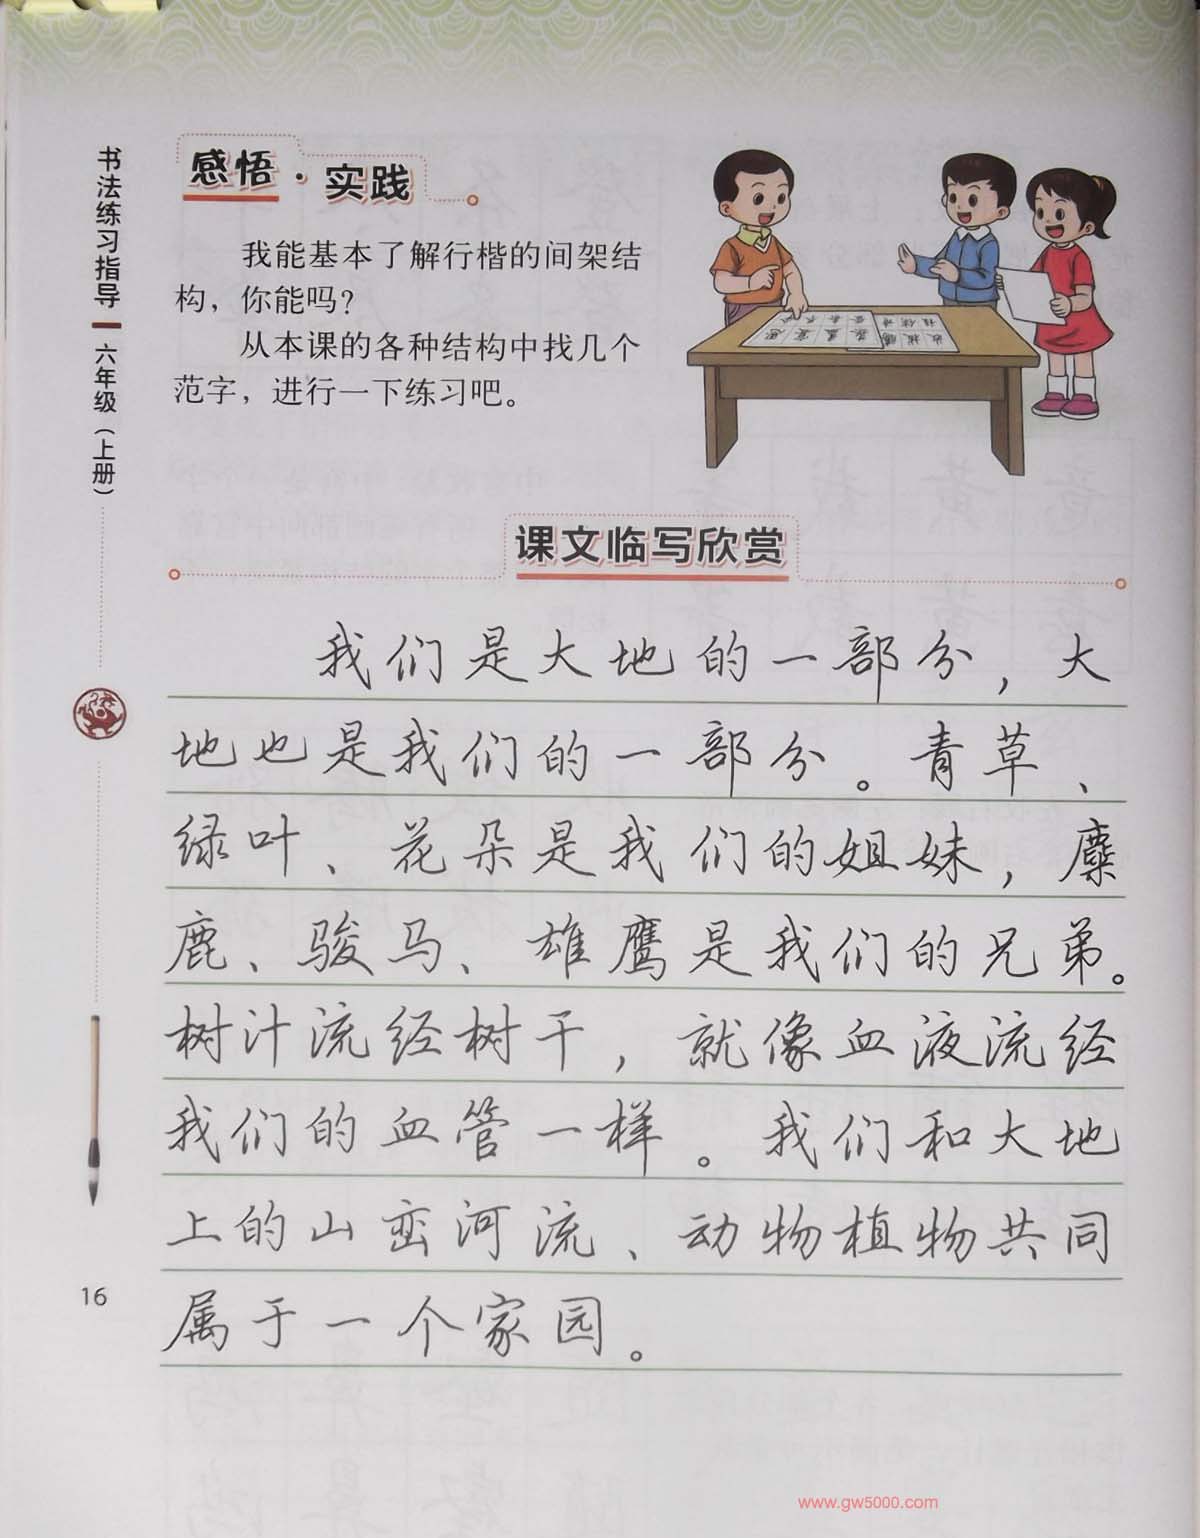 书法练习指导
六年级（上册）
感悟·实践
我能基本了解行楷的间架结
构，你能吗？
从本课的各种结构中找几个
范字，进行一下练习吧。
课文临写欣赏
我们是大地的一部分，大
地也是我们的一部分。青草、
绿叶、花朵是我们的姐妹，麋
鹿、骏马、雄鹰是我们的兄弟。
树汁流经树干，就像血液流经
我们的血管一样。我们和大地
上的山峦河流、动物植物共同
属于一个家园。
16
www.gw5000.com